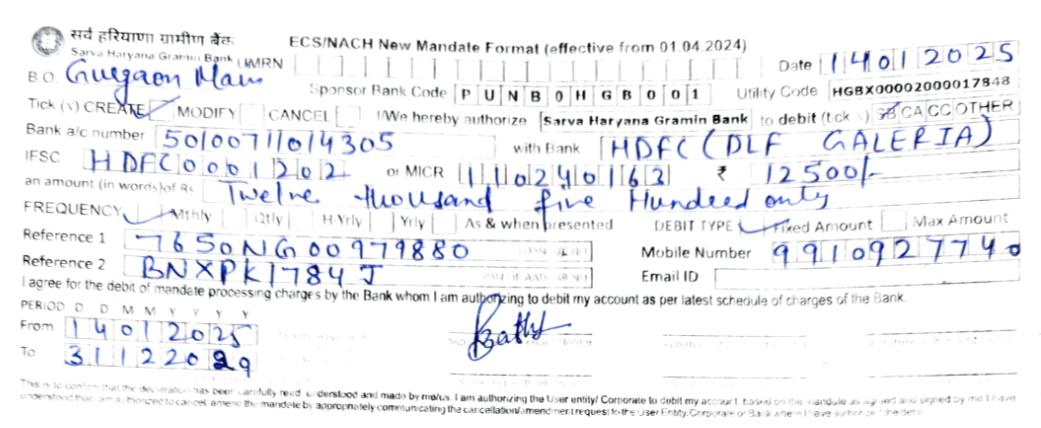 सर्व हरियाणा ग्रामीण बैंक
Sarva Haryana Gramin Bank UMRN
ECS/NACH New Mandate Format (effective from 01.04.2024)
Date 14012025
B.O. Gurgaon Main
Sponsor Bank Code PUNB0HGB001 Utility Code HGBX00002000017848
Tick (√) CREATE MODIFY CANCEL I/We hereby authorize Sarva Haryana Gramin Bank to debit (tick √) SB CA CC OTHER
Bank a/c number 50100711014305 with Bank HDFC (DLF GALERIA)
IFSC HDFC0001202 or MICR 110240163 ₹ 12500/-
an amount (in words) of Rs Twelve thousand five Hundred only
FREQUENCY Mthly Qtly H-Yrly Yrly As & when presented DEBIT TYPE Fixed Amount Max Amount
Reference 1 7650NG00979880 Mobile Number 9910927740
Reference 2 BNXPK1784J Email ID
I agree for the debit of mandate processing charges by the Bank whom I am authorizing to debit my account as per latest schedule of charges of the Bank.
PERIOD D D M M Y Y Y Y
From 14012025
To 31122029
This is to confirm that the declaration has been carefully read, understood and made by me/us. I am authorizing the User entity/ Corporate to debit my account, based on the mandate as agreed and signed by me I have
understood that I am authorized to cancel, amend the mandate by appropriately communicating the cancellation/amendment request to the User Entity/Corporate or Bank where I have authorized the debit